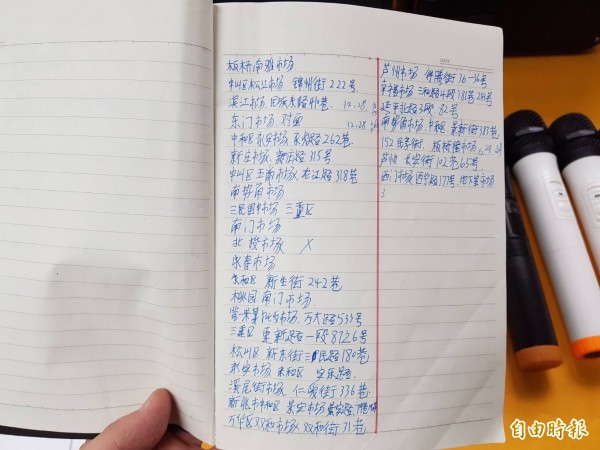 板桥南雅市场
中山区松江市场 锦州街222号
滨江市场
东门市场 对面
中和区永安市场 永贞路262巷
新庄市场 新庄路315号
中山区 市场 龙江路318巷
南势角市场
三民国中市场 三重区
南门市场
北投市场 X
永春市场
永和区 新生街242巷
桃园南门市场
果菜批发市场 万大路533号
三重区 重新路一段87 26号
松山区 新东街 三民路180巷
永安市场 永和区 安乐路
溪尾街市场 仁爱街336巷
新北市中和区 景安市场 景安路
万华区双和市场 双和街31巷
芦州市场 得胜街 16号
三和路4段
延平北路3段 82号
南势角市场 中和区 景新街383巷
152号 街 板桥
芦州 长安街102巷65号
西门市场 17号 地下 市场
3
自由時報